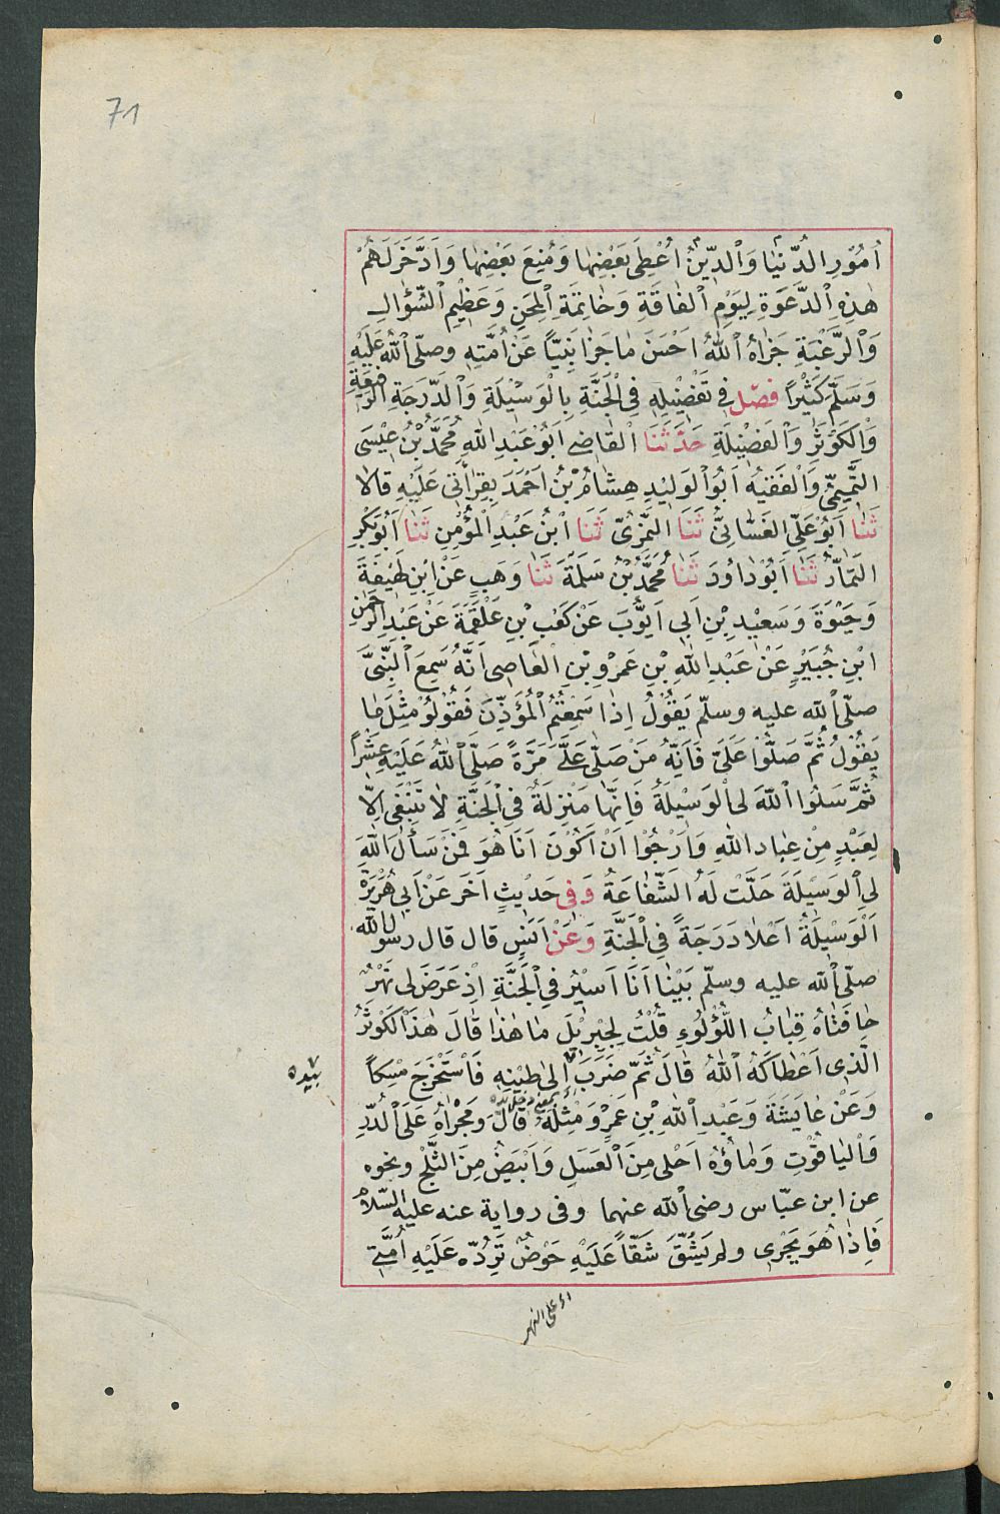 71
اُمُوْرِ الدُّنْيَا وَالدِّيْنِ اُعْطِىَ بَعْضَهَا وَمُنِعَ بَعْضِهَا وَادَّخَرَ لَهُمْ
هٰذِهِ الدَّعْوَةِ لِيَوْمِ الْفَاقَةِ وَخَاتِمَةِ الْمِحَنِ وَعَظِيْمِ السُّؤَالِ
وَالرَّغْبَةِ جَزَاهُ اللّٰهُ اَحْسَنَ مَا جَزَا نَبِيًّا عَنْ اُمَّتِهِ وصلّى اللّٰه عَلَيْهِ
وَسَلَّمَ كَثِيْرًا فصل فِى تَفْضِيْلِهِ فِى الْجَنَّةِ بِالْوَسِيْلَةِ وَالدَّرَجَةِ الرَّفِيْعَةِ
وَالْكَوْثَرِ وَالْفَضِيْلَةِ حَدَّثَنَا الْقَاضِى اَبُوْ عَبْدِ اللّٰهِ مُحَمَّدُ بْنُ عِيْسَى
التَّمِيْمِىُّ وَالْفَقِيْهُ اَبُو الْوَلِيْدِ هِشَامُ بْنُ اَحْمَدَ بِقِرَائَتِى عَلَيْهِ قَالَا
ثَنَا اَبُوْ عَلِىٍّ الْغَسَّانِىُّ ثَنَا النَّمَرِىُّ ثَنَا ابْنُ عَبْدِ الْمُؤْمِنِ ثَنَا اَبُوْ بَكْرٍ
التَّمَّارُ ثَنَا اَبُوْ دَاوُدَ ثَنَا مُحَمَّدُ بْنُ سَلَمَةَ ثَنَا وَهَبٍ عَنْ ابْنِ لَهِيْعَةَ
وَحَيْوَةَ وَسَعِيْدِ بْنِ اَبِى اَيُّوْبَ عَنْ كَعْبِ بْنِ عَلْقَمَةَ عَنْ عَبْدِ الرَّحْمٰنِ
ابْنِ جُبَيْرٍ عَنْ عَبْدِ اللّٰهِ بْنِ عَمْرِو بْنِ الْعَاصِى اَنَّهُ سَمِعَ النَّبِىَّ
صلّى اللّٰه عليه وسلّم يَقُوْلُ اِذَا سَمِعْتُمُ الْمُؤَذِّنَ فَقُوْلُوْ مِثْلَ مَا
يَقُوْلُ ثُمَّ صَلُّوْا عَلَىَّ فَاِنَّهُ مَنْ صَلَّى عَلَىَّ مَرَّةً صَلَّى اللّٰهُ عَلَيْهِ عَشْرًا
ثُمَّ سَلُوا اللّٰهَ لِى الْوَسِيْلَةُ فَاِنَّهَا مَنْزِلَةٌ فِى الْجَنَّةِ لَا تَنْبَغِى اِلَّا
لِعَبْدٍ مِنْ عِبَادِ اللّٰهِ وَاَرْجُوْا اَنْ اَكُوْنَ اَنَا هُوَ فَمَنْ سَاَلَ اللّٰهَ
لِى الْوَسِيْلَةَ حَلَّتْ لَهُ الشَّفَاعَةُ وَفِى حَدِيْثٍ اٰخَرَ عَنْ اَبِى هُرَيْرَةَ
اَلْوَسِيْلَةُ اَعْلَا دَرَجَةً فِى الْجَنَّةِ وَعَنْ اَنَسٍ قال قال رسول اللّٰه
صلّى اللّٰه عليه وسلّم بَيْنَا اَنَا اَسِيْرُ فِى الْجَنَّةِ اِذْ عَرَضَ لِى نَهْرٌ
حَافَتَاهُ قِبَابُ اللُّؤْلُوءِ قُلْتُ لِجِبْرِيْلَ مَا هٰذَا قَالَ هٰذَا الْكَوْثَرُ
الَّذِى اَعْطَاكَهُ اللّٰهُ قَالَ ثُمَّ ضَرَبَ اِلٰى طِيْنِهِ فَاسْتَخْرَجَ مِسْكًا
بيده
وَعَنْ عَايِشَةَ وَعَبْدِ اللّٰهِ بْنِ عَمْرٍو مِثْلَهُ قَالَ وَمَجْرَاهُ عَلَى الدُّرِّ
وَالْيَاقُوْتِ وَمَاؤُهُ اَحْلَى مِنَ الْعَسَلِ وَاَبْيَضُ مِنَ الثَّلْجِ ونحوه
عن ابن عبّاس رضى اللّٰه عنهما وفى رواية عنه عليه السّلام
فَاِذَا هُوَ يَجْرِى ولم يَشُقَّ شَقًّا عَلَيْهِ حَوْضٌ تَرِدُّه عَلَيْهِ اُمَّتِى
اى على النهر